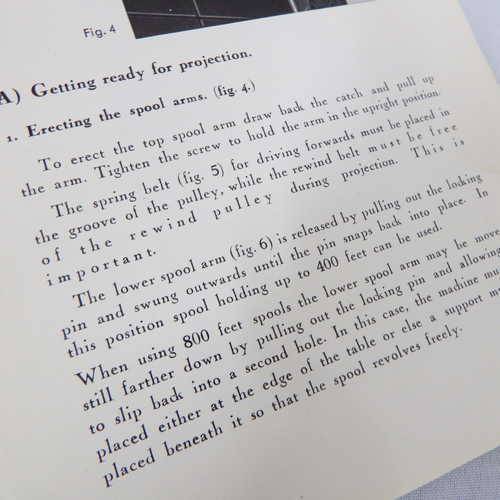 Fig. 4
A) Getting ready for projection.
1. Erecting the spool arms. (fig. 4.)
To erect the top spool arm draw back the catch and pull up
the arm. Tighten the screw to hold the arm in the upright position.
The spring belt (fig. 5) for driving forwards must be placed in
the groove of the pulley, while the rewind belt must be free
of the rewind pulley during projection. This is
important.
The lower spool arm (fig. 6) is released by pulling out the locking
pin and swung outwards until the pin snaps back into place. In
this position spool holding up to 400 feet can be used.
When using 800 feet spools the lower spool arm may be move
still farther down by pulling out the locking pin and allowing
to slip back into a second hole. In this case, the machine mu
placed either at the edge of the table or else a support m
placed beneath it so that the spool revolves freely.